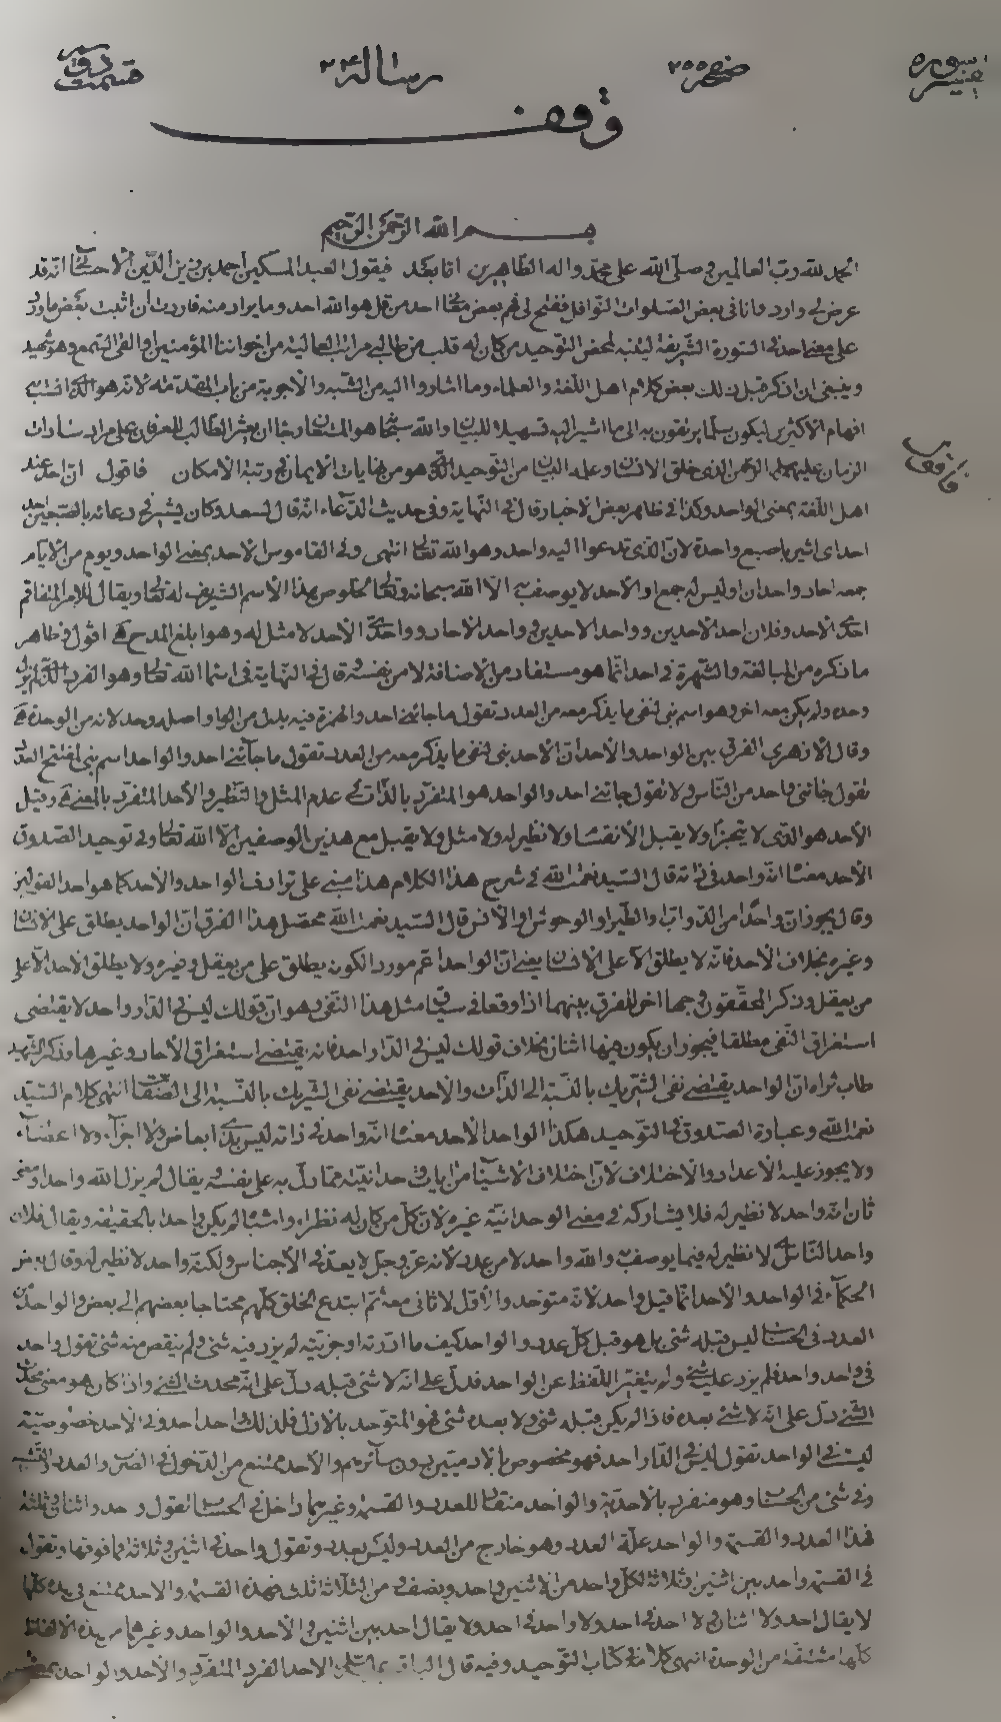 صفحه ٢٥٥
رسالة ٢٤
قسمت
وقف
بسم الله الرحمن الرحيم
الحمد لله رب العالمين وصلى الله على محمد واله الطاهرين اما بعد فيقول العبد المسكين احمد بن زين الدين الاحسائى انه قد
عرض لى وارد وانا فى بعض الصلوات النوافل ففتح لى فهم بعض معنى احد من قل هو الله احد وما يراد منه فاردت ان اثبت بعض ما ورد
على معنى احد فى السورة الشريفة لينبه لمحض التوحيد من كان له قلب من طالبى مراتب العالية من اخواننا المؤمنين او القى السمع وهو شهيد
وينبغى ان اذكر قبل ذلك بعض كلام اهل اللغة والعلماء وما اشاروا اليه من الشبه والاجوبة من باب المقدمة لانه هو الذى انست به
افهام الاكثرين ليكون سلما يرتقون به الى ما اشير اليه تسهيلا للبيان والله سبحانه هو المستعان
خلق الانسان وعلمه البيان من التوحيد الذى هو من غايات الايمان فى رتبة الامكان فاقول ان احد عند
اهل اللغة بمعنى الواحد وكذا فى ظاهر بعض الاخبار قال فى النهاية وفى حديث الدعاء انه قال لسعد وكان يشير فى دعائه باصبعين احد
احد اى اشر باصبع واحدة لان الذى تدعوا اليه واحد وهو الله تعالى انتهى وفى القاموس الاحد بمعنى الواحد ويوم من الايام
جمعه احاد واحدان او ليس له جمع او الاحد لا يوصف به الا الله سبحانه وتعالى لخلوص هذا الاسم الشريف له تعالى ويقال للامر المتفاقم
احدى الاحد وفلان احد الاحدين وواحد الاحدين وواحد الاحاد وواحدى الاحد لا مثل له وهو ابلغ المدح اقول وظاهر
ما ذكره من المبالغة والشهرة فى احد انما هو مستفاد من الاضافة لا من نفسه قال فى النهاية فى اسماء الله تعالى وهو الفرد الذى لم يزل
وحده ولم يكن معه اخر وهو اسم بنى لنفى ما يذكر معه من العدد تقول ما جائنى احد والهمزة فيه بدل من الواو واصله وحد لانه من الوحدة
وقال الازهرى الفرق بين الواحد والاحد ان الاحد بنى لنفى ما يذكر معه من العدد تقول ما جائنى احد والواحد اسم بنى لمفتتح العدد
تقول جائنى واحد من الناس ولا تقول جائنى احد والواحد هو المتفرد بالذات فى عدم المثل والنظير والاحد المتفرد بالمعنى وقيل
الاحد هو الذى لا يتجزأ ولا يقبل الانقسام ولا نظير له ولا مثل ولا يقبل مع هذين الوصفين الا الله تعالى وفى توحيد الصدوق
الاحد معناه انه واحد فى ذاته قال السيد نعمت الله فى شرح هذا الكلام هذا مبنى على ترادف الواحد والاحد كما هو احد القولين
وقال يجوز ان واحدا من الدواب او الطير او الوحوش او الانس قال السيد نعمت الله محصل هذا الفرق ان الواحد يطلق على الانسان
وغيره بخلاف الاحد فانه لا يطلق الا على الانسان يعنى ان الواحد اعم موردا لكونه يطلق على من يعقل وغيره ولا يطلق الاحد الا على
من يعقل وذكر المحققون وجها اخر للفرق بينهما اذا وقعا فى سياق مثل هذا النفى وهو ان قولك ليس فى الدار واحد لا يقتضى
استغراق النفى مطلقا فيجوز ان يكون فيها اثنان بخلاف قولك ليس فى الدار احد فانه يقتضى استغراق الاحاد وغيرها وذكر الشهيد
طاب ثراه ان الواحد يقتضى نفى الشريك بالنسبة الى الذات والاحد يقتضى نفى الشريك بالنسبة الى الصفات انتهى كلام السيد
نعمت الله وعبارة الصدوق فى التوحيد هكذا الواحد الاحد معناه انه واحد فى ذاته ليس بذى ابعاض ولا اجزاء ولا اعضاء
ولا يجوز عليه الاعداد والاختلاف لان اختلاف الاشياء من ايات وحدانيته مما دل به على نفسه يقال لم يزل الله واحدا ومعنى
ثان انه واحد لا نظير له فلا يشاركه فى معنى الوحدانية غيره لان كل من كان له نظراء واشباه لم يكن واحدا بالحقيقة ويقال فلان
واحد الناس اى لا نظير له فيما يوصف به والله واحد لا من عدد لانه عز وجل لا يعد فى الاجناس ولكنه واحد لا نظير له وقال بعض
الحكماء فى الواحد والاحد انما قيل واحد لانه متوحد والاول لا ثانى معه ثم ابتدع الخلق كلهم محتاجا بعضهم الى بعض والواحد من
العدد فى الحساب ليس قبله شئ بل هو قبل كل عدد والواحد كيف ما ادرته او جزيته لم يزد فيه شئ ولم ينقص منه شئ تقول واحد
فى واحد واحد فلم يزد عليه شئ ولم يتغير اللفظ عن الواحد فدل على انه لا شئ قبله دل على انه محدث الشئ واذا كان هو مفنى محدث
الشئ دل على انه لا شئ بعده فاذا لم يكن قبله شئ ولا بعده شئ فهو المتوحد بالازل فلذلك واحد احد وفى الاحد خصوصية
ليست فى الواحد تقول ليس فى الدار احد فهو مخصوص بالادميين دون سائرهم والاحد ممتنع من الدخول فى الضرب والعدد والقسمة
وفى شئ من الحساب وهو منفرد بالاحدية والواحد منقاد للعدد والقسمة وغيرهما داخل فى الحساب تقول واحد واثنان وثلثة
فهذا العدد والقسمة والواحد علة العدد وهو خارج من العدد وليس بعدد وتقول واحد فى اثنين وثلاثة فما فوقها وتقول
فى القسمة واحد بين اثنين وثلاثة لكل واحد من الاثنين واحد ونصف ومن الثلاثة ثلث فهذه القسمة والاحد ممتنع فى هذه كلها
لا يقال احد ولا اثنان ولا احد فى احد ولا واحد فى احد ولا يقال احد بين اثنين والاحد والواحد وغيرهما من هذه الالفاظ
كلها مشتقة من الوحدة انتهى كلامه فى كتاب التوحيد وفيه قال الباقر عليه السلام الاحد الفرد المتفرد والاحد والواحد بمعنى